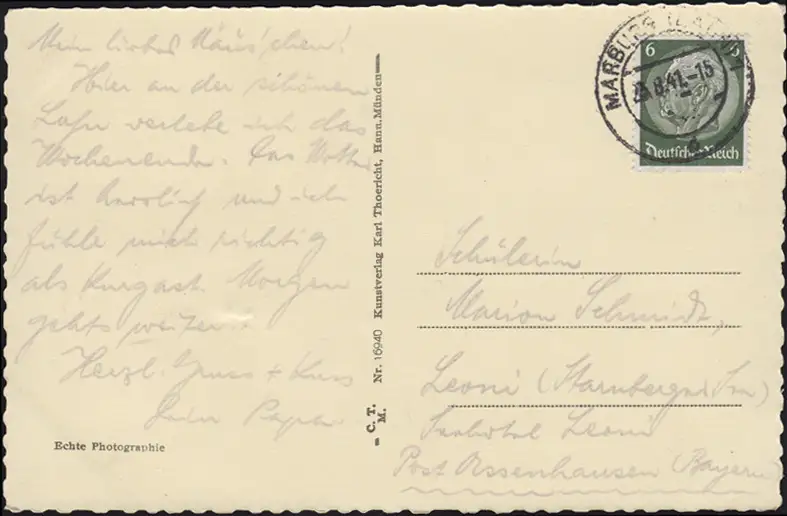 Mein liebes Mäuschen!
Hier an der schönen
Lahn verlebe ich das
Wochenende. Das Wetter
ist herrlich und ich
fühle mich richtig
als Kurgast. Morgen
gehts weiter.
Herzl. Gruss + Kuss
Dein Papa
Echte Photographie
= C. T. M. Nr. 16940 Kunstverlag Karl Thoericht, Hann. Münden
MARBURG (LAHN)
8.41.-15
6 6
Deutsches Reich
Schülerin
Marion Schmidt,
Leoni (Starnberger See)
Seehotel Leoni
Post Assenhausen (Bayern)